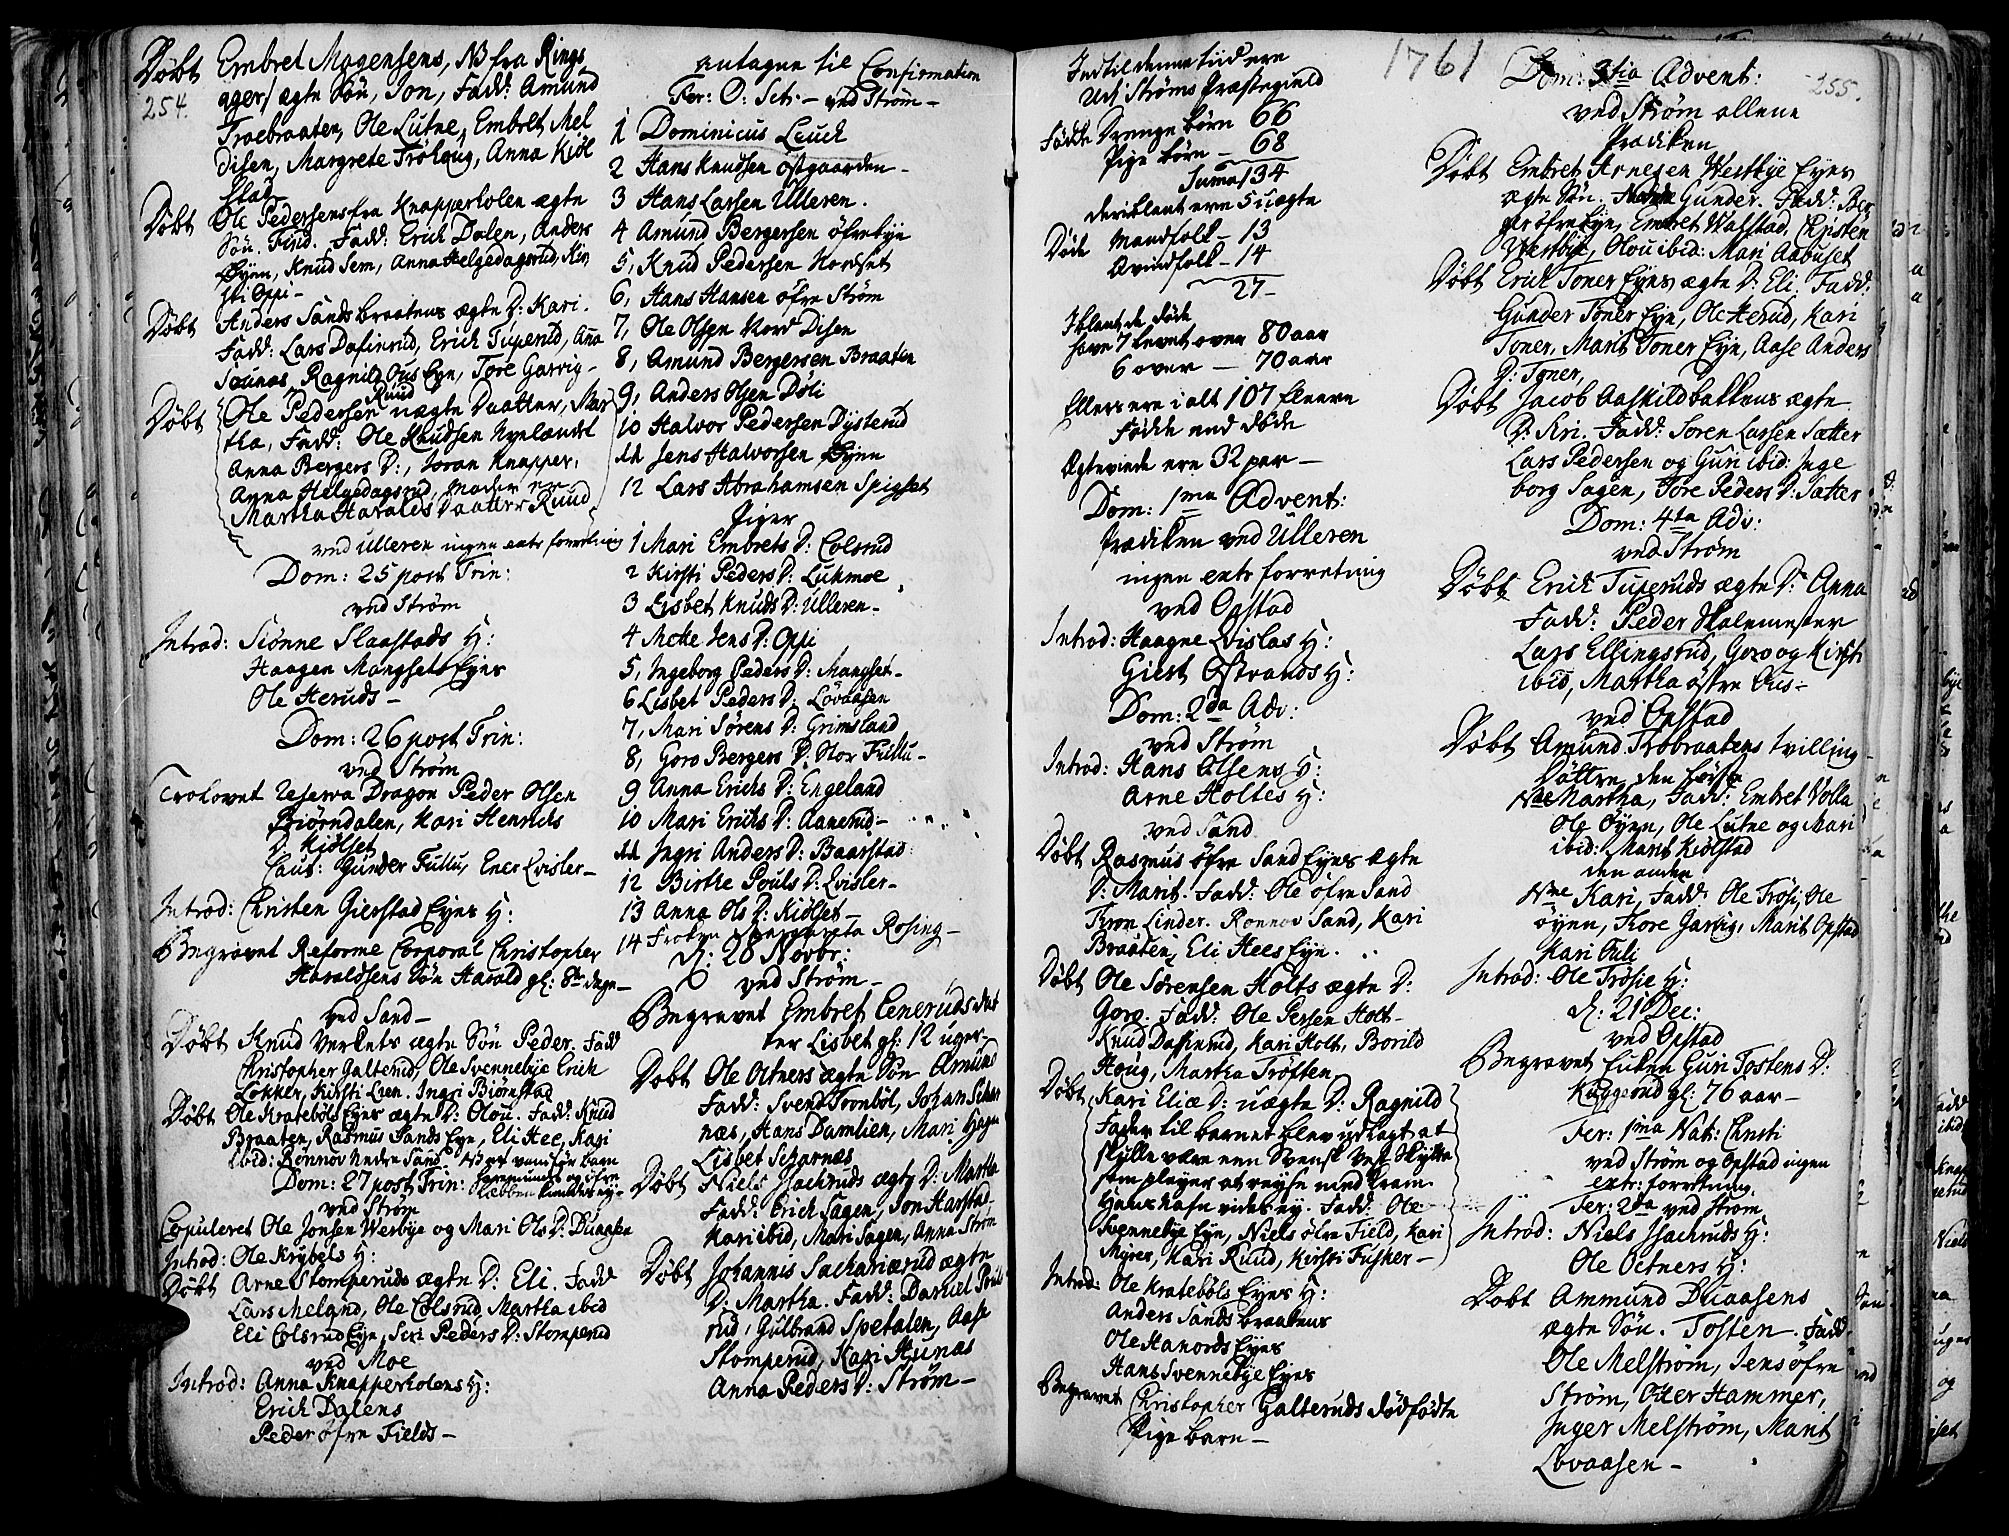 254.
Døbt Embret Mogensens, NB fra Rings
ager/ ægte Søn, Jon, Fadd: Amund
Troebraaten, Ole Lutne, Embret Mel
disen, Margrete Trøhoug, Anna Kiøl
stad
Døbt Ole Pedersens fra Knapperholen ægte
Søn. Find. Fadd: Erich Dolen, Anders
Øyen, Knud Sem, Anna Helgedagsrud, Kir
sti Oppi -
Døbt Anders Sandsbraatens ægte D: Kari.
Fadd: Lars Dafinrud, Erich Tuperud, Ana
Saunæs, Ragnild Ous Eyn, Tore Garvig -
Døbt Ole Pedersen Ruud uægte Daatter, Mar
tha, Fadd: Ole Knudsen Nyelændet
Anna Bergers D:, Joran Knapper,
Anna Helgedagsrud, Moder er
Martha Haralds Daatter Ruud
ved Ulleren ingen extr forretning
Dom: 25 post Trin:
ved Strøm
Introd: Siønne Slaastads H:
Haagen Mangsets Eyes
Ole Heruds -
Dom: 26 post Trin:
ved Strøm
Trolovet Reserva Dragon Peder Olsen
Biørndalen, Kari Henrichs
D. Kiølset
Caut: Gunder Fullu, Ener Qvisler -
Introd: Christen Gierstad Eyes H:
Begravet Reforme Corporal Christopher
Haraldsens Søn Harald gl: 8te dage -
ved Sand -
Døbt Knud Verkets ægte Søn Peder. Fadd
Christopher Galterud, Ole Svennebye Erich
Løkker, Kirsti Leen. Ingri Biørnstad
Døbt Ole Kratebøls Eyes ægte D: Olou. Fadd: Knud
Braaten, Rasmus Sands Eye, Eli Hee, Kari
ibid: Rønnov Nedre Sand
Dom: 27 post Trin:
ved Strøm
Copuleret Ole Jonsen Wesbye og Mari Ols D: Duaasen
Introd: Ole Krybels H:
Døbt Arne Stomperuds ægte D: Eli. Fadd
Lars Meland, Ole Colsrud, Martha ibid
Eli Colsrud Eyn, Siri Peders D: Stomperud
ved Moe
Introd: Anna Knapperholens H:
Erich Dalens
Peder øfre Fields -
antagne til Confirmation
Per: O: Sch: - ved Strøm -
1 Dominicus Leuch
2 Hans Knudsen Østgaarden -
3 Hans Larsen Ulleren.
4 Amund Bergersen øfrebye
5, Knud Pedersen Nordset
6, Hans Hansen øfre Strøm
7, Ole Olsen Nord Disen
8, Amund Bergersen Braaten
9, Anders Olsen Døli
10 Halvor Pedersen Dysterud
11 Jens Halvorsen Øyen
12 Lars Abrahamsen Spigset
Piger
1 Mari Embrets D: Colsrud
2 Kirsti Peders D: Lukmoe
3 Lisbet Knuds D: Ulleren -
4 Mette Jens D: Oppi
5, Ingeborg Peders D: Mangset -
6 Lisbet Peders D: Løvaasen
7, Mari Sørens D: Grimsland
8, Goro Bergers D: Stor Fullu -
9 Anna Erichs D: Engeland
10 Mari Erichs D: Aanerud -
11 Ingri Anders D: Baarstad
12 Birthe Pouls D: Qvisler -
13 Anna Ols D: Kiølset -
14 Frøken Margareta Rosing -
d: 28 Novbr:
ved Strøm -
Begravet Embret Eeneruds dat
ter Lisbet gl: 12 uger -
Døbt Ole Oetners ægte Søn Amund
Fadd: Svend Trondbøl, Johan Schar
næs, Hans Damlien, Mari Hagen
Lisbet Scharnæs
Døbt Niels Isachruds ægte D: Martha
Fadd: Erich Sagen, Jon Harstad
Kari ibid, Mari Sagen, Anna Strøm
Døbt Johannis Sachariærud ægte
D: Martha. Fadd: Daniel Pouls
rud, Gulbrand Spetalen, Aase
Stomperud, Kari Hunæs
Anna Peders D: Strøm -
1761
Indtil denne tiid ere
Udj Strøms Præstegield
Fødte Drenge børn 66
Pige børn - 68
Suma 134
deriblant ere 5 uægte
Døde Mandfolk - 13
Qvindfolk - 14
27 -
Iblant de døde
have 7 levet over 80 aar
6 over - 70 aar
Ellers ere i alt 107 fleere
fødde end døde
Ægteviede ere 32 par -
Dom: 1ma Advent:
Prædiken ved Ulleren
ingen extr forretning
ved Opstad
Introd: Haagne Qvislas H:
Giert Ostrands H:
Dom: 2da Adv:
ved Strøm
Introd: Hans Olsens H:
Arne Holtes H:
ved Sand
Døbt Rasmus øfre Sand Eyes ægte
D: Marit. Fadd: Ole øfre Sand
Thron Linder. Rønnov Sand, Kari
Braaten, Eli Hees Eyn.
Døbt Ole Sørensen Holts ægte D:
Goro. Fadd: Ole Persen Holt -
Knud Dafinrud, Kari Holt, Borild
Houg, Martha Trøften
Døbt Kari Eliæ D: uægte D: Ragnild
Fader til barnet blev udlagt at
skulle være een Svensk
som pleyer at reyse med Kram
Fadd: Ole
Svennebye Eyn, Niels øfre Field, Kari
Myrer, Kari Ruud, Kirsti Fusker -
Introd: Ole Kratebøls Eyes H:
Anders Sandsbraatens
Ole Hanords Eyes
Hans Svennebye Eyes
Begravet Christopher Galteruds dødfødte
Pige barn -
255.
Dom: 3tia Advent:
ved Strøm allene
Prædiken
Døbt Embret Arnesen Westbye Eyes
ægte Søn. Gunder. Fadd: Ber
ger øfre Eye, Embret Walstad, Christen
Westbye, Olou ibid: Mari Aabuset
Døbt Erich Toner Eyes ægte D: Eli. Fadd:
Gunder Toner Eyn, Ole Herud, Kari
Toner, Marit Toner Eyn, Aase Anders
D: Toner,
Døbt Jacob Aaskildbakkens ægte
D: Kri. Fadd: Soren Larsen Sætter
Lars Pedersen og Guri ibid: Inge
borg Sagen, Tore Peders D: Sætter
Dom: 4ta Adv:
ved Strøm
Døbt Erich Tuperuds ægte D: Anna
Fadd: Peder Skolemester
Lars Ellingsrud, Goro og Kirsti
ibid, Martha østre Ous -
ved Opstad
Døbt Amund Trøbraatens tvilling
Døttre, den første
Nne Martha, Fadd: Embret Volla
Ole Øyen, Ole Lutne og Mari
ibid: Marit Kiølstad
den anden
Nne Kari, Fadd: Ole Trøsi, Ole
øyen, Tore Garvig, Marit Opstad
Kari Tuli
Introd: Ole Trøsie H:
d: 21 Dec:
ved Opstad
Begravet Enken Guri Tostens D:
Kuggerud gl: 76 aar -
Fer: 1ma Nat: Christi
ved Strøm og Opstad ingen
extr: forretning.
Fer: 2da ved Strøm
Introd: Niels Isachruds H:
Ole Oetners H:
Døbt Ammund Duaasens
ægte Søn. Tosten. Fadd.
Ole Melstrøm, Jens øfre
Strøm, Otter Hammer,
Inger Melstrøm, Marit
Løvaasen -